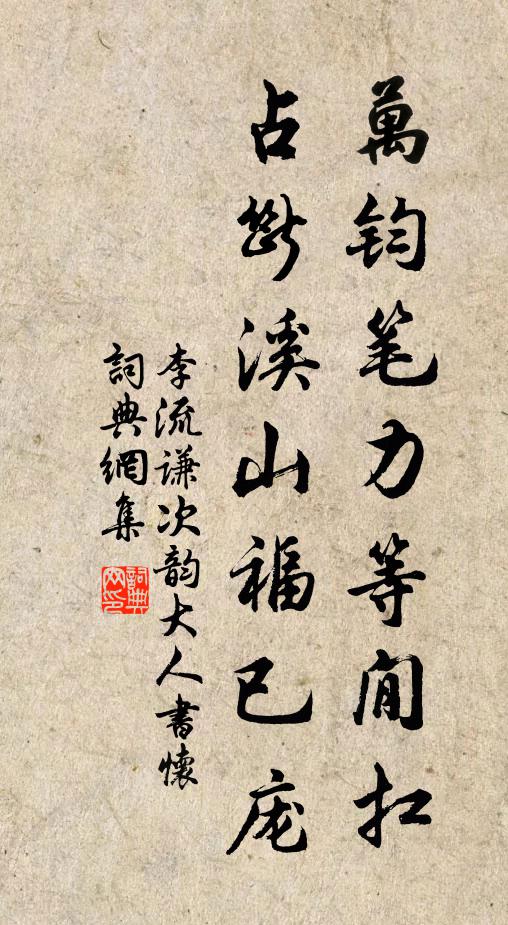 萬鈞笔力等閒扛
占斷溪山福已庞
李流謙次韵大人書懷
詞典網集
詞典网印